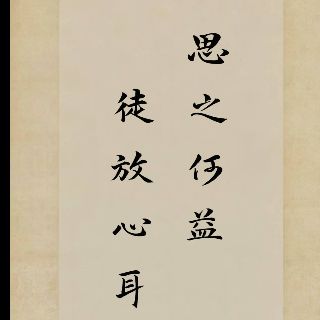 思之何益
徒放心耳